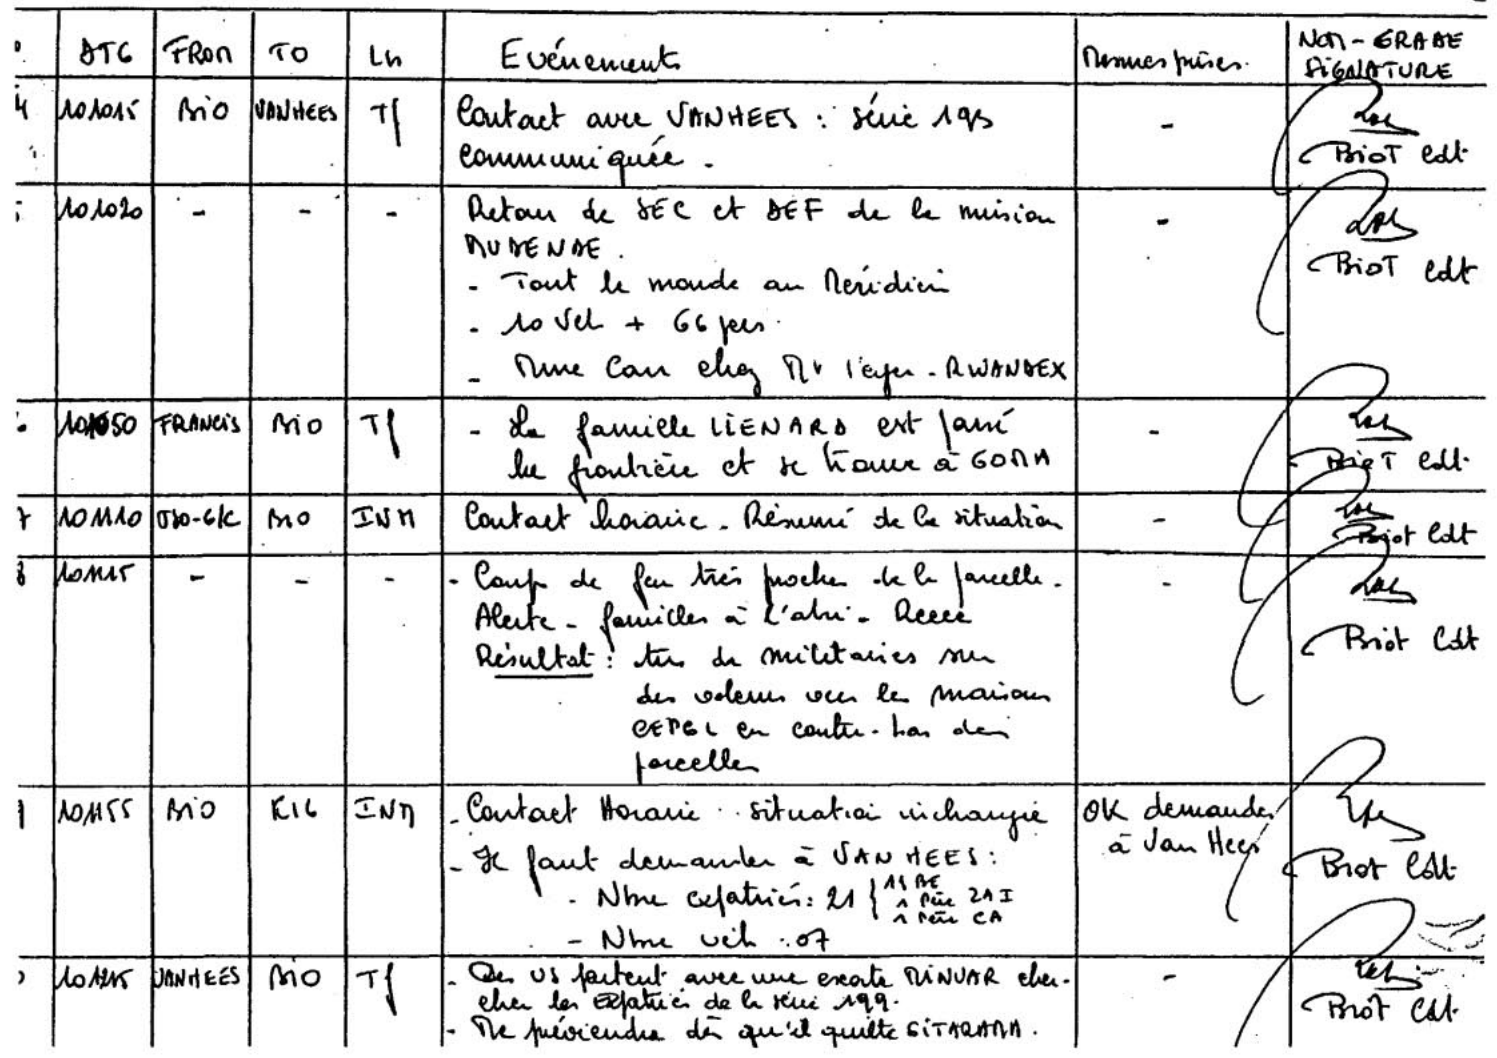 DTG FROM TO Ln Evénements Mesures prises NOM-GRADE
SIGNATURE
4 101015 BIO VANHEES Tf Contact avec VANHEES : série 193
communiquée.
BIOT Cdt
101020 - - - Retour de SEC et DEF de la mission
MUDENDE.
- Tout le monde au Méridien
- 10 Veh + 66 pers.
- Mme Can chez Mr - RWANDEX
BIOT Cdt
FRANCIS BIO Tf - La famille LIENARD est passé
la frontière et se trouve à GOMA
BIOT Cdt
7 101110 BIO INM Contact horaire - Résumé de la situation
Biot Cdt
8 101115 - - - - Coup de feu très proche de la parcelle.
Alerte - familles à l'abri - Recce
Résultat : tirs de militaires sur
des voleurs vers les maisons
CEPGL en contre-bas des
parcelles
Biot Cdt
101155 BIO KIG INM - Contact Horaire : situation inchangée
OK demander
à Van Hees
- Il faut demander à VAN HEES :
- Nbre expatriés : 21 { BE
1 Père ZAI
1 Père CA
- Nbre veh : 07
Biot Cdt
VANHEES BIO Tf - Des US partent avec une escorte MINUAR cher-
cher les Expatriés de la série 199.
- Me préviendra dès qu'il quitte GITARAMA.
Biot Cdt